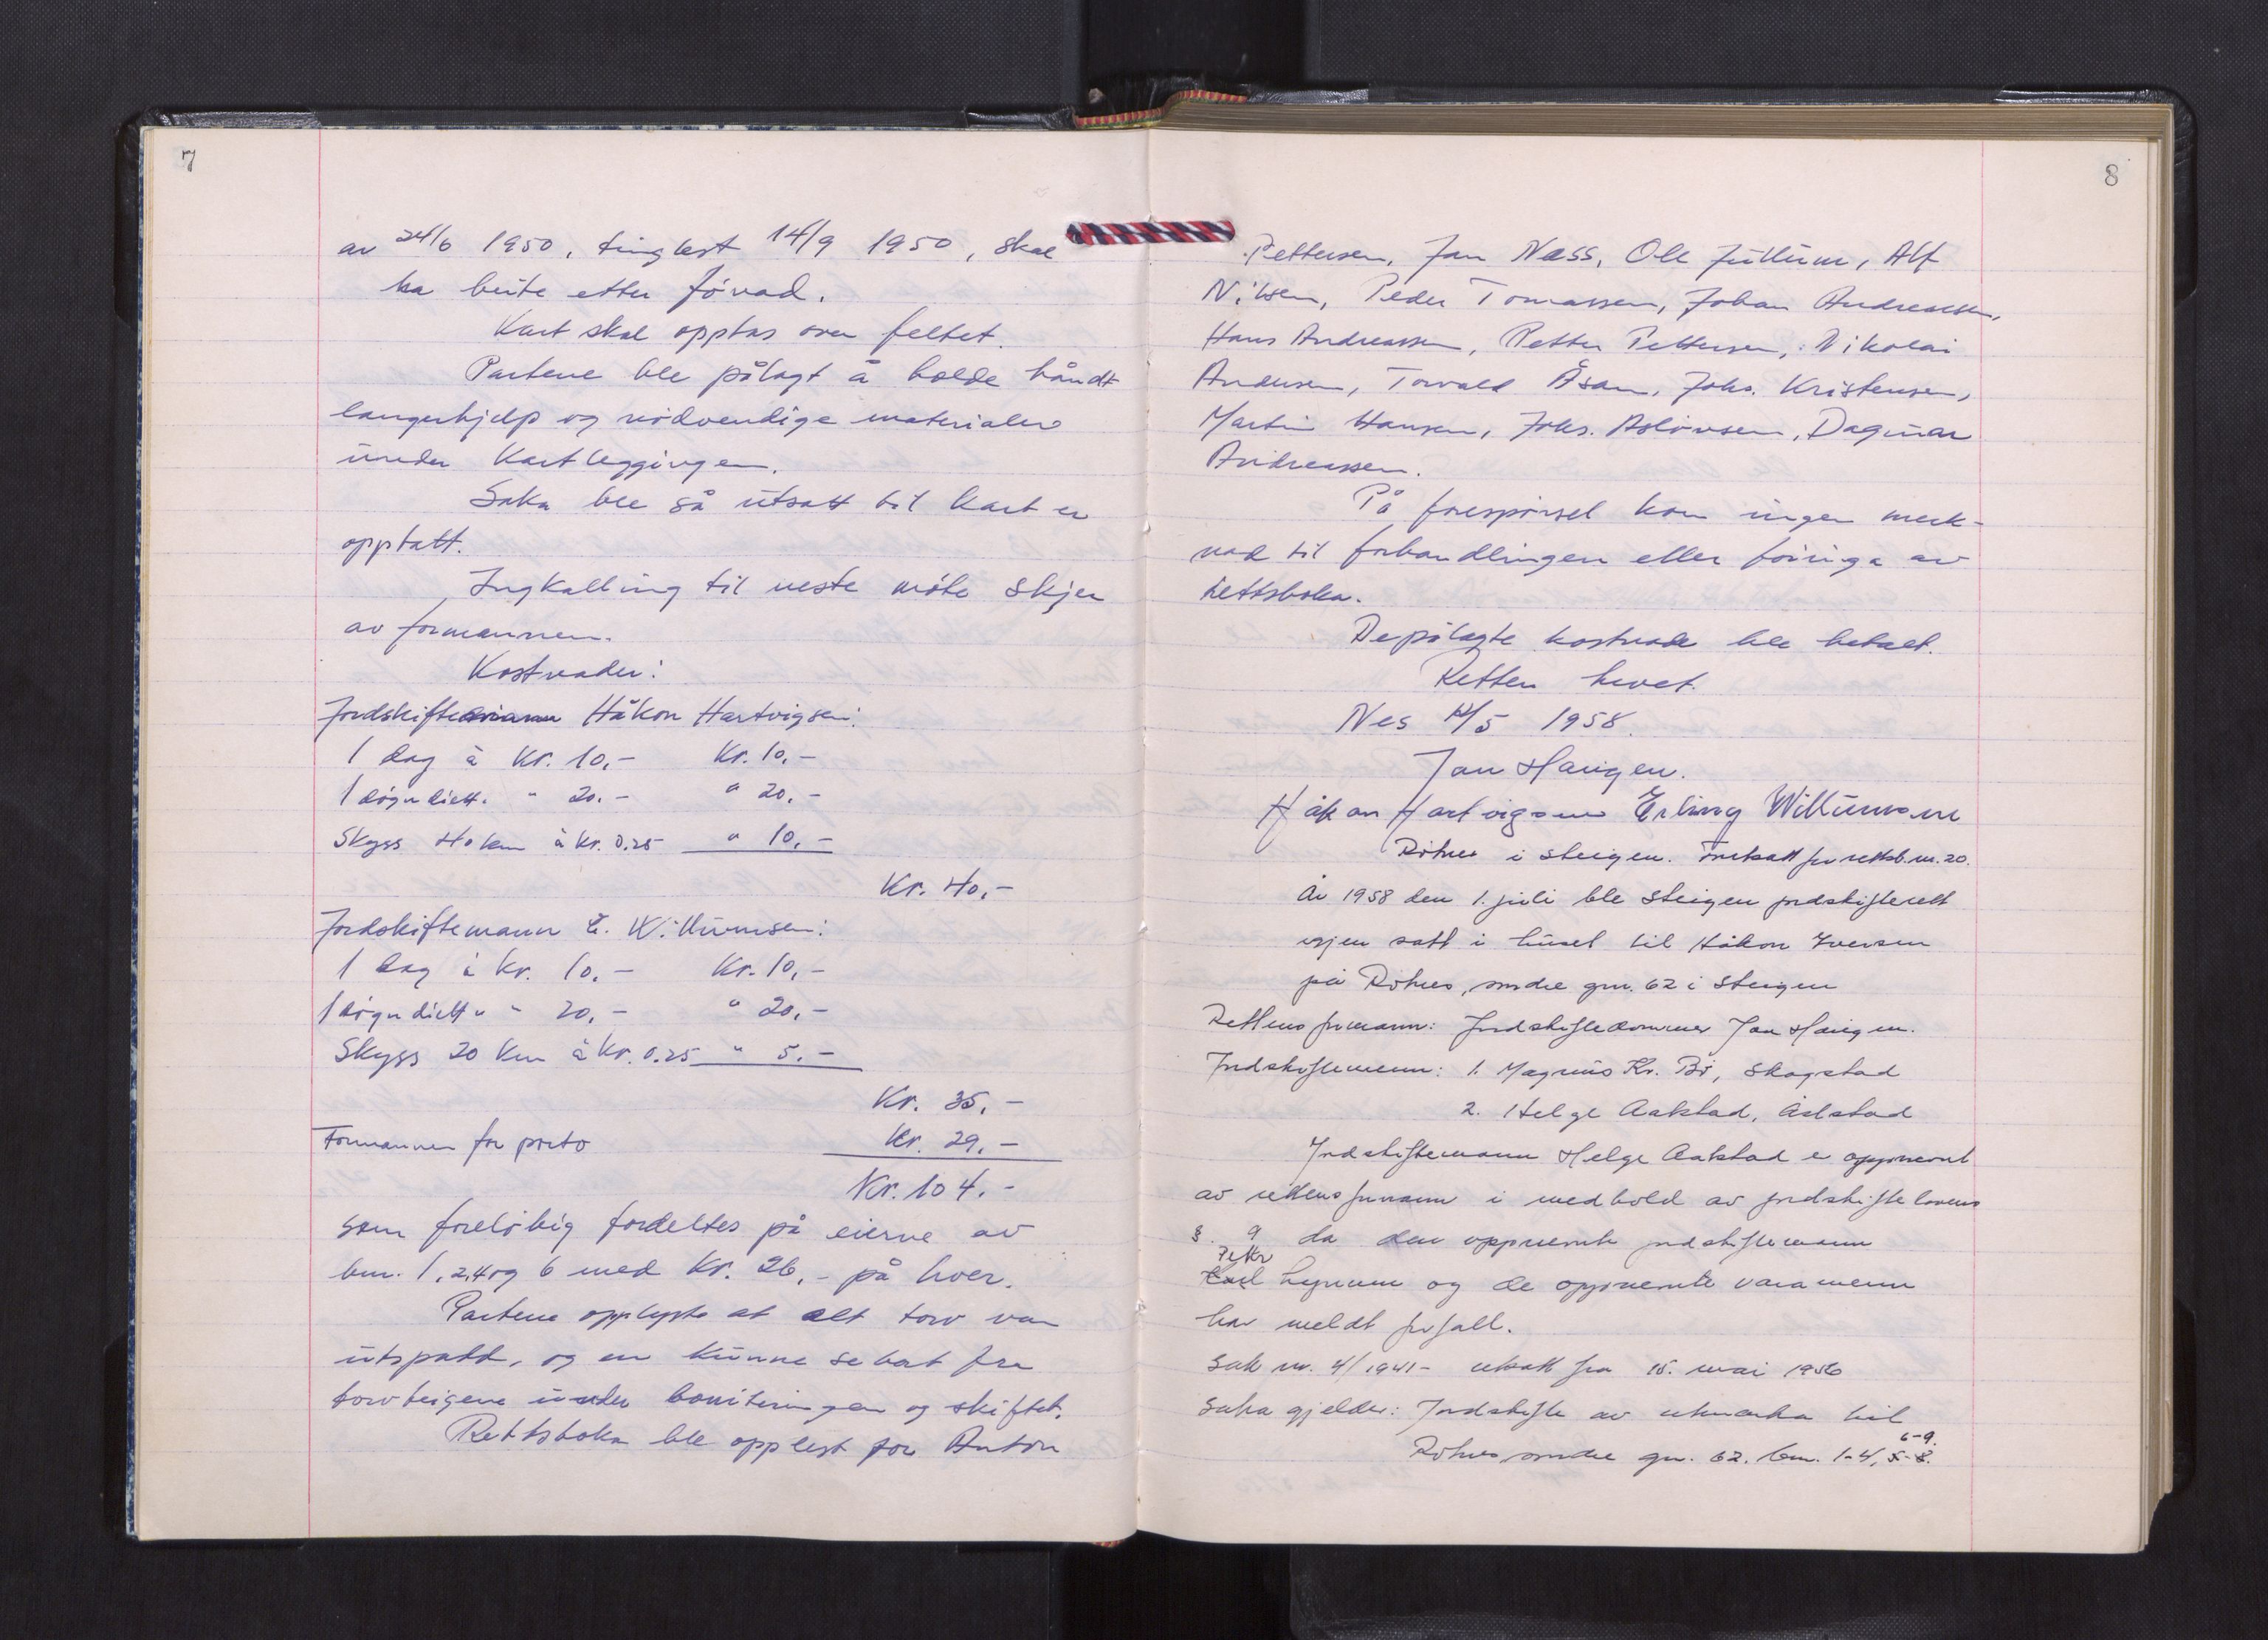 7
av 24/6 1950, tinglest 14/9 1950, skal
ha beite etter
Kart skal opptas over feltet.
Partene ble pålagt å holde håndt
langerhjelp og nødvendige materialer
under Kartleggingen.
Saka ble så utsatt til kart er
opptatt.
Innkalling til neste møte skjer
av formannen.
Kostnader:
Jordskiftemann Håkon Hartvigsen:
1 dag à Kr. 10,- Kr. 10,-
1 døgn diett " 20.- " 20,-
Skyss 40 km à kr. 0.25 " 10,-
Kr. 40,-
Jordskiftemann E. Willumsen:
1 dag à kr. 10,- Kr. 10,-
1 døgn diett " " 20,- " 20,-
Skyss 20 km à kr. 0.25 " 5.-
Kr. 35,-
Formannen for porto Kr. 29,-
Kr. 104.-
som foreløbig fordeltes på eierne av
bnr. 1, 2, 4 og 6 med Kr. 26,- på hver.
Partene opplyste at alt torv var
utspadd, og en kunne se bort fra
torvteigene under boniteringen og skiftet.
Rettsboka ble opplest for Anton
8
Pettersen, Jan Næss, Ole Alf
Nilsen, Peder Tomassen, Johan Andreassen,
Hans Andreassen, Petter Pettersen, Nikolai
Andersen, Torvald Åsan, Johs. Kristensen,
Martin Hansen, Johs. Dagmar
Andreassen.
På forespørsel kom ingen merk-
nad til forhandlingen eller føringa av
rettsboka.
De pålagte kostnade ble betalt.
Retten hevet.
Nes 14/5 1958.
Jan Haugen.
Håkon Hartvigsen Erling Willumsen
Röhnes i Steigen. Fortsatt fra rettsb. nr. 20.
År 1958 den 1. juli ble Steigen jordskifterett
igjen satt i huset til Håkon Iversen
på Röhnes, søndre gnr. 62 i Steigen
Rettens formann: Jordskiftedommer Jan Haugen.
Jordskiftemenn: 1. Magnus Kr. Bö, Skagstad
2. Helge Aalstad, Ålstad
Jordskiftemann Helge Aalstad er oppnevnt
av rettens formann i medhold av jordskiftelovens
§. 9 da den oppnevnte jordskiftemann
Petter
og de oppnevnte varamenn
har meldt forfall.
Sak nr. 4/1941- utsatt fra 15. mai 1956
Saka gjelder: Jordskifte av utmarka til
6-9.
Röhnes søndre gnr. 62. bnr. 1-4, 5-8.